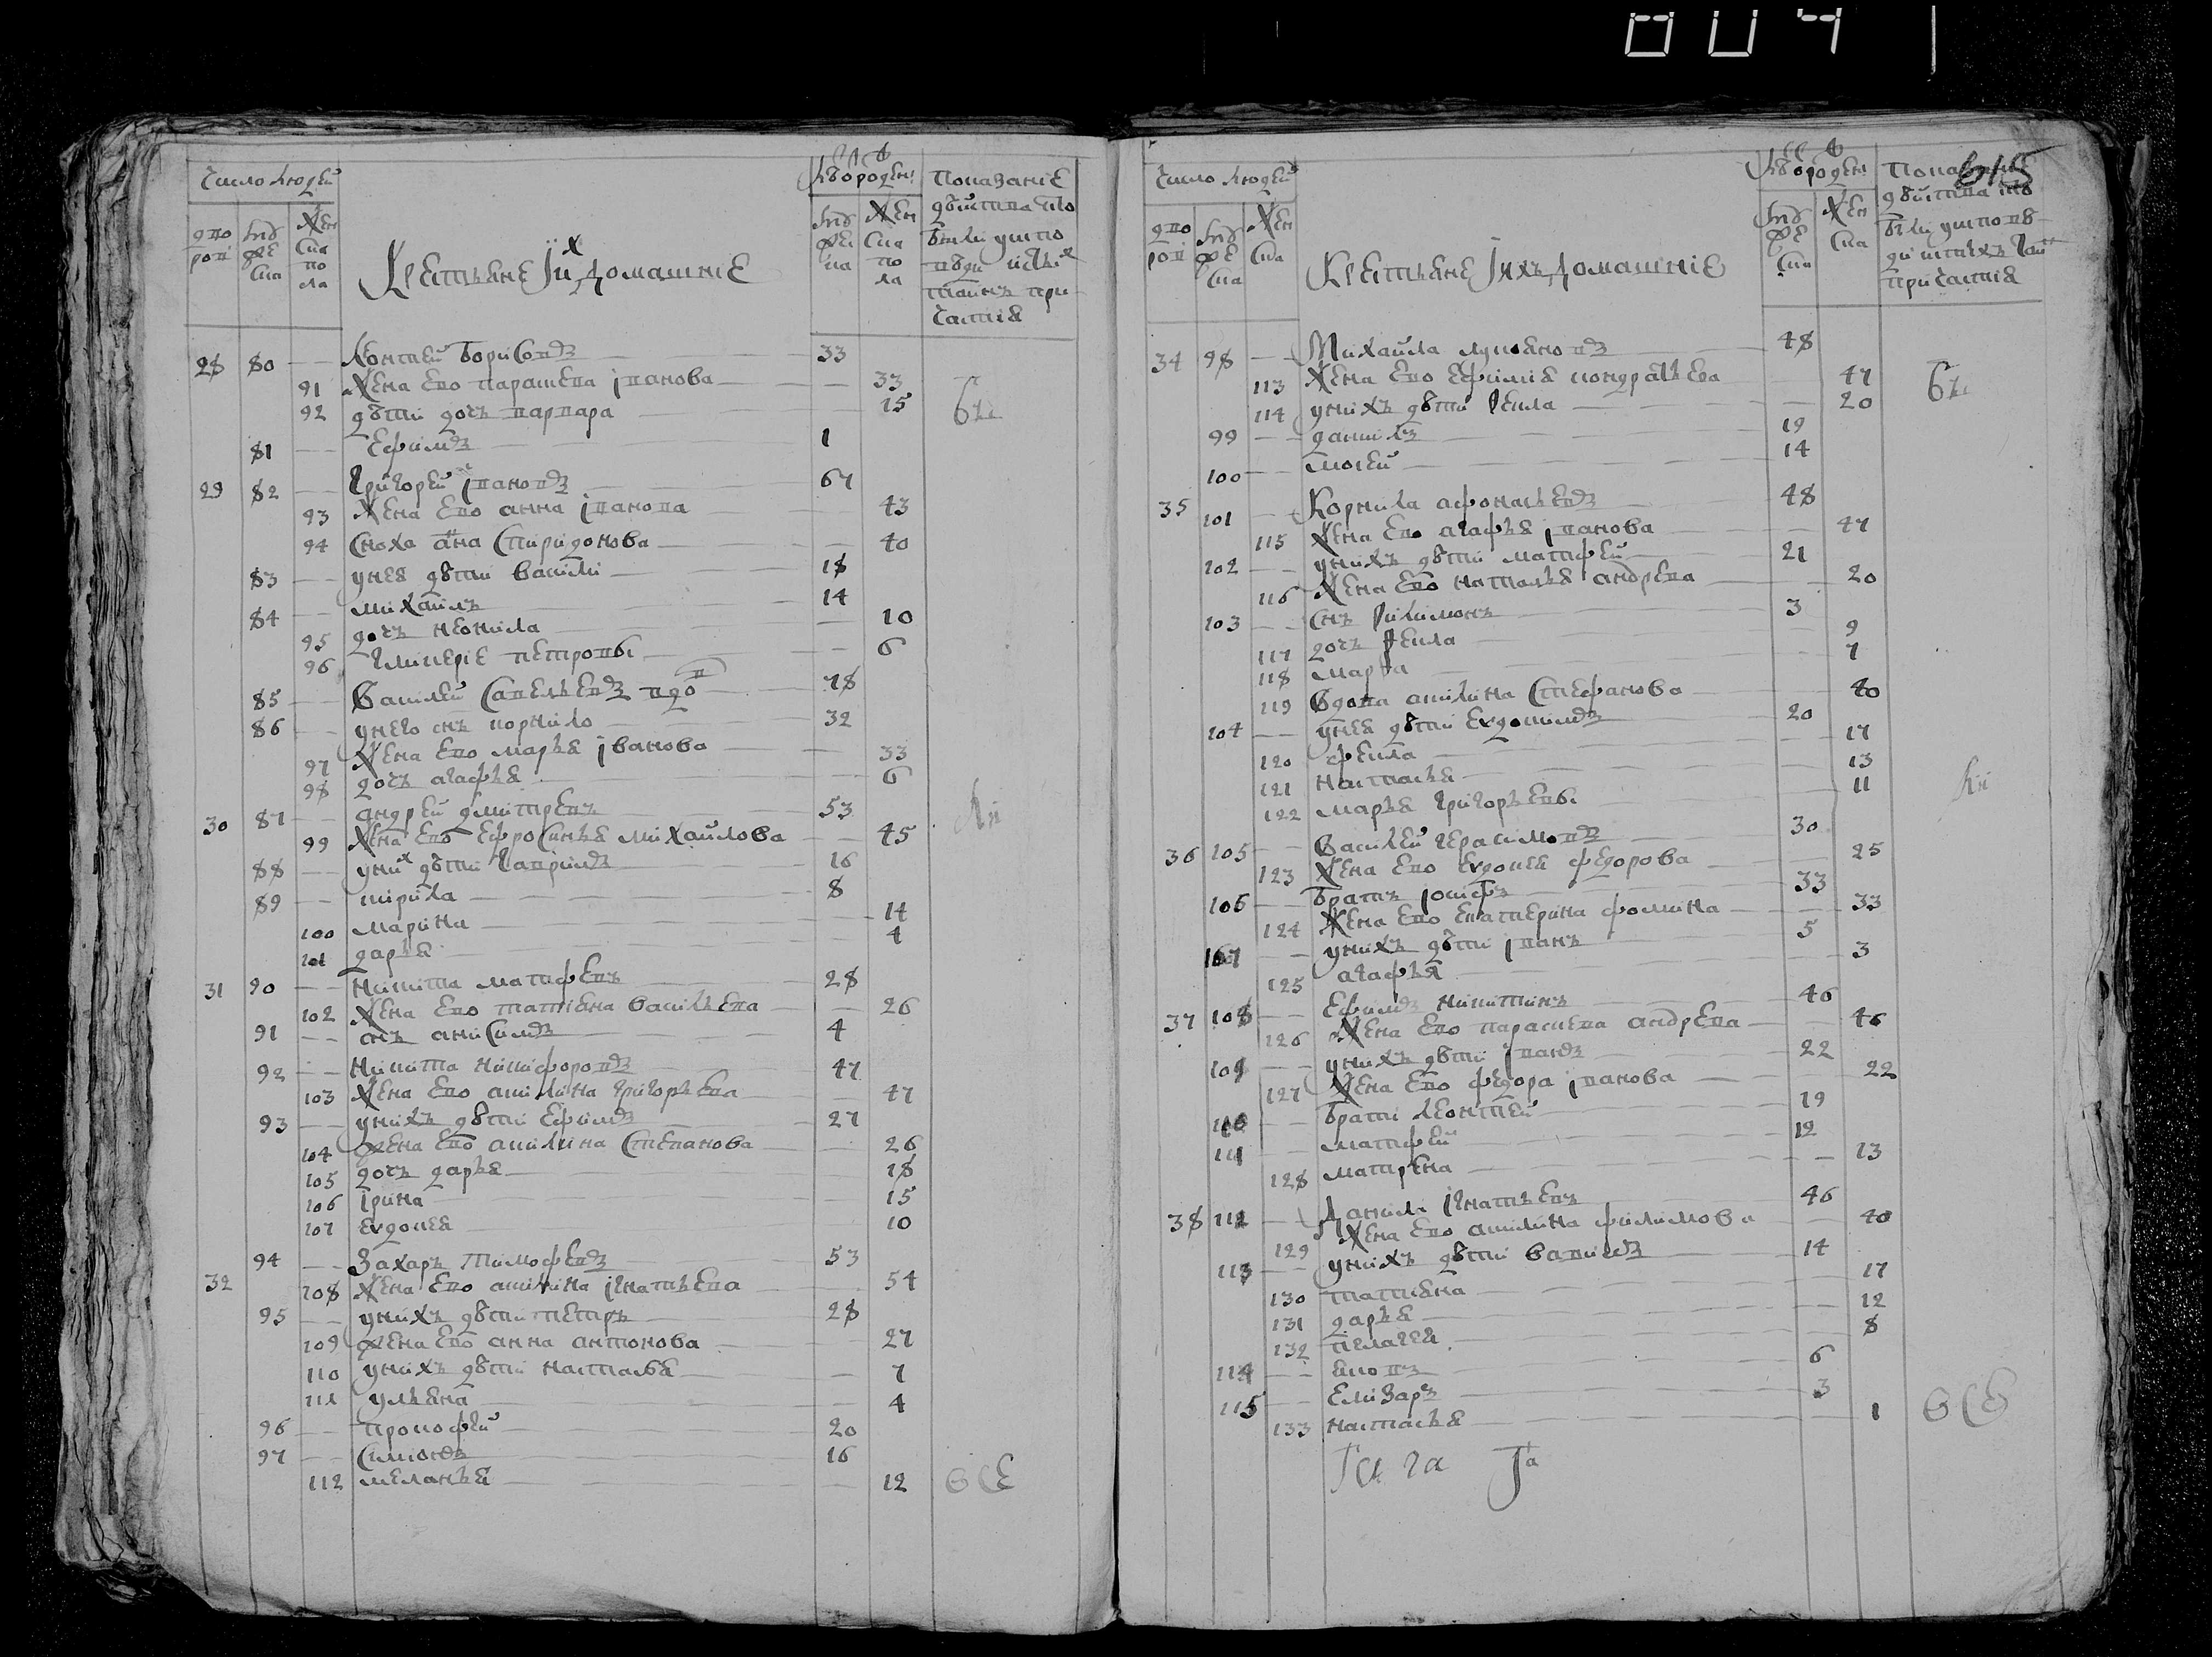 Число людей
Крестьяне и их домашние
лѣта от рожден.
Показание действа кто был у исповеди и с[вя]тых тайн причастия
28 80 — Леонтей Борисовъ — 33
91 Жена ево Парасшева Іванова — 33
92 дѣти дочь Варвара — 15
81 — Ефимъ — 1
29 82 — Григорей Івановъ — 67
93 Жена ево Анна Іванова — 43
94 Сноха Анна Спиридонова — 40
83 — у нея дѣти Васили — 18
84 — Михаилъ — 14
95 дочь Неонила — 10
96 Гликерiе Петровы — 6
85 — Василей Савельевъ вдов — 78
86 — у него снъ Корнило — 32
97 Жена ево Марья Іванова — 33
98 дочь Агафья — 6
30 87 — Андрей Дмитревъ — 53
99 Жена ево Ефросинья Михайлова — 45
88 — у них дѣти Гаврилъ — 16
89 — Кирила — 8
100 Марина — 14
101 Дарья — 4
31 90 — Никита Матфевъ — 28
102 Жена ево Татіяна Васильева — 26
91 — снъ Анисимъ — 4
92 — Никита Никифоровъ — 47
103 Жена ево Акилина Григорьева — 47
93 — у нихъ дѣти Ефимъ — 27
104 Жена ево Акилина Степанова — 26
105 дочь Дарья — 18
106 Ірина — 15
107 Евдокея — 10
94 — Захаръ Тимофевъ — 53
32 108 Жена ево Акилина Ігнатьева — 54
95 — у нихъ дѣти Петръ — 28
109 Жена ево Анна Антонова — 27
110 у нихъ дѣти Наталья — 7
111 Ульяна — 4
96 — Прокофей — 20
97 — Симионъ — 16
112 Меланья — 12
Число людей
Крестьяне Ихъ Домашніе
615
34 98 — Михайла Лукьяновъ — 48
113 Жена ево Ефимия Кондратьева — 47
114 у нихъ дѣти Фекла — 20
99 — Данилъ — 19
100 — Мосей — 14
35 101 — Корнила Афонасьевъ — 48
115 Жена ево Агафья Іванова — 47
102 — у нихъ дѣти Матфей — 21
116 Жена ево Наталья Андрева — 20
103 — снъ Филимонъ — 3
117 дочь Фекла — 9
118 Марфа — 7
119 Вдова Акилина Стефанова — 40
104 — у нея дѣти Евдокимъ — 20
120 Фекла — 17
121 Наталья — 13
122 Марья Григорьевы — 11
36 105 — Василей Герасимовъ — 30
123 Жена ево Евдокея Федорова — 25
106 — братъ Іосифъ — 33
124 Жена ево Екатерина Фомина — 33
107 — у нихъ дѣти Іванъ — 5
125 Агафья — 3
37 108 — Ефимъ Никитинъ — 46
126 Жена ево Парасшева Андрева — 46
109 — у нихъ дѣти Іванъ — 22
127 Жена ево Федора Іванова — 22
110 — брати Леонтей — 19
111 — Матфей — 12
128 Матрена — 13
38 112 — Данила Ігнатьевъ — 46
129 Жена ево Акилина Филимова — 40
113 — у нихъ дѣти — 14
130 Татіяна — 17
131 Дарья — 12
132 Пелагея — 8
114 — Яковъ — 6
115 — Елизаръ — 3
133 Настасья — 1